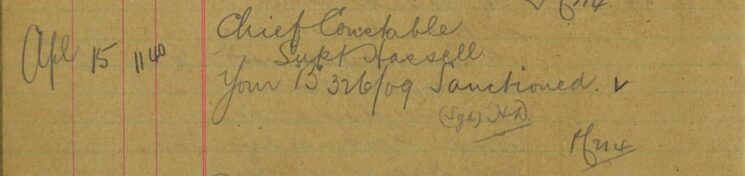 Apl 15 1140 Chief Constable
Supt Hassell
Your B 326/09 Sanctioned. ✓
(Sgd) H.D.